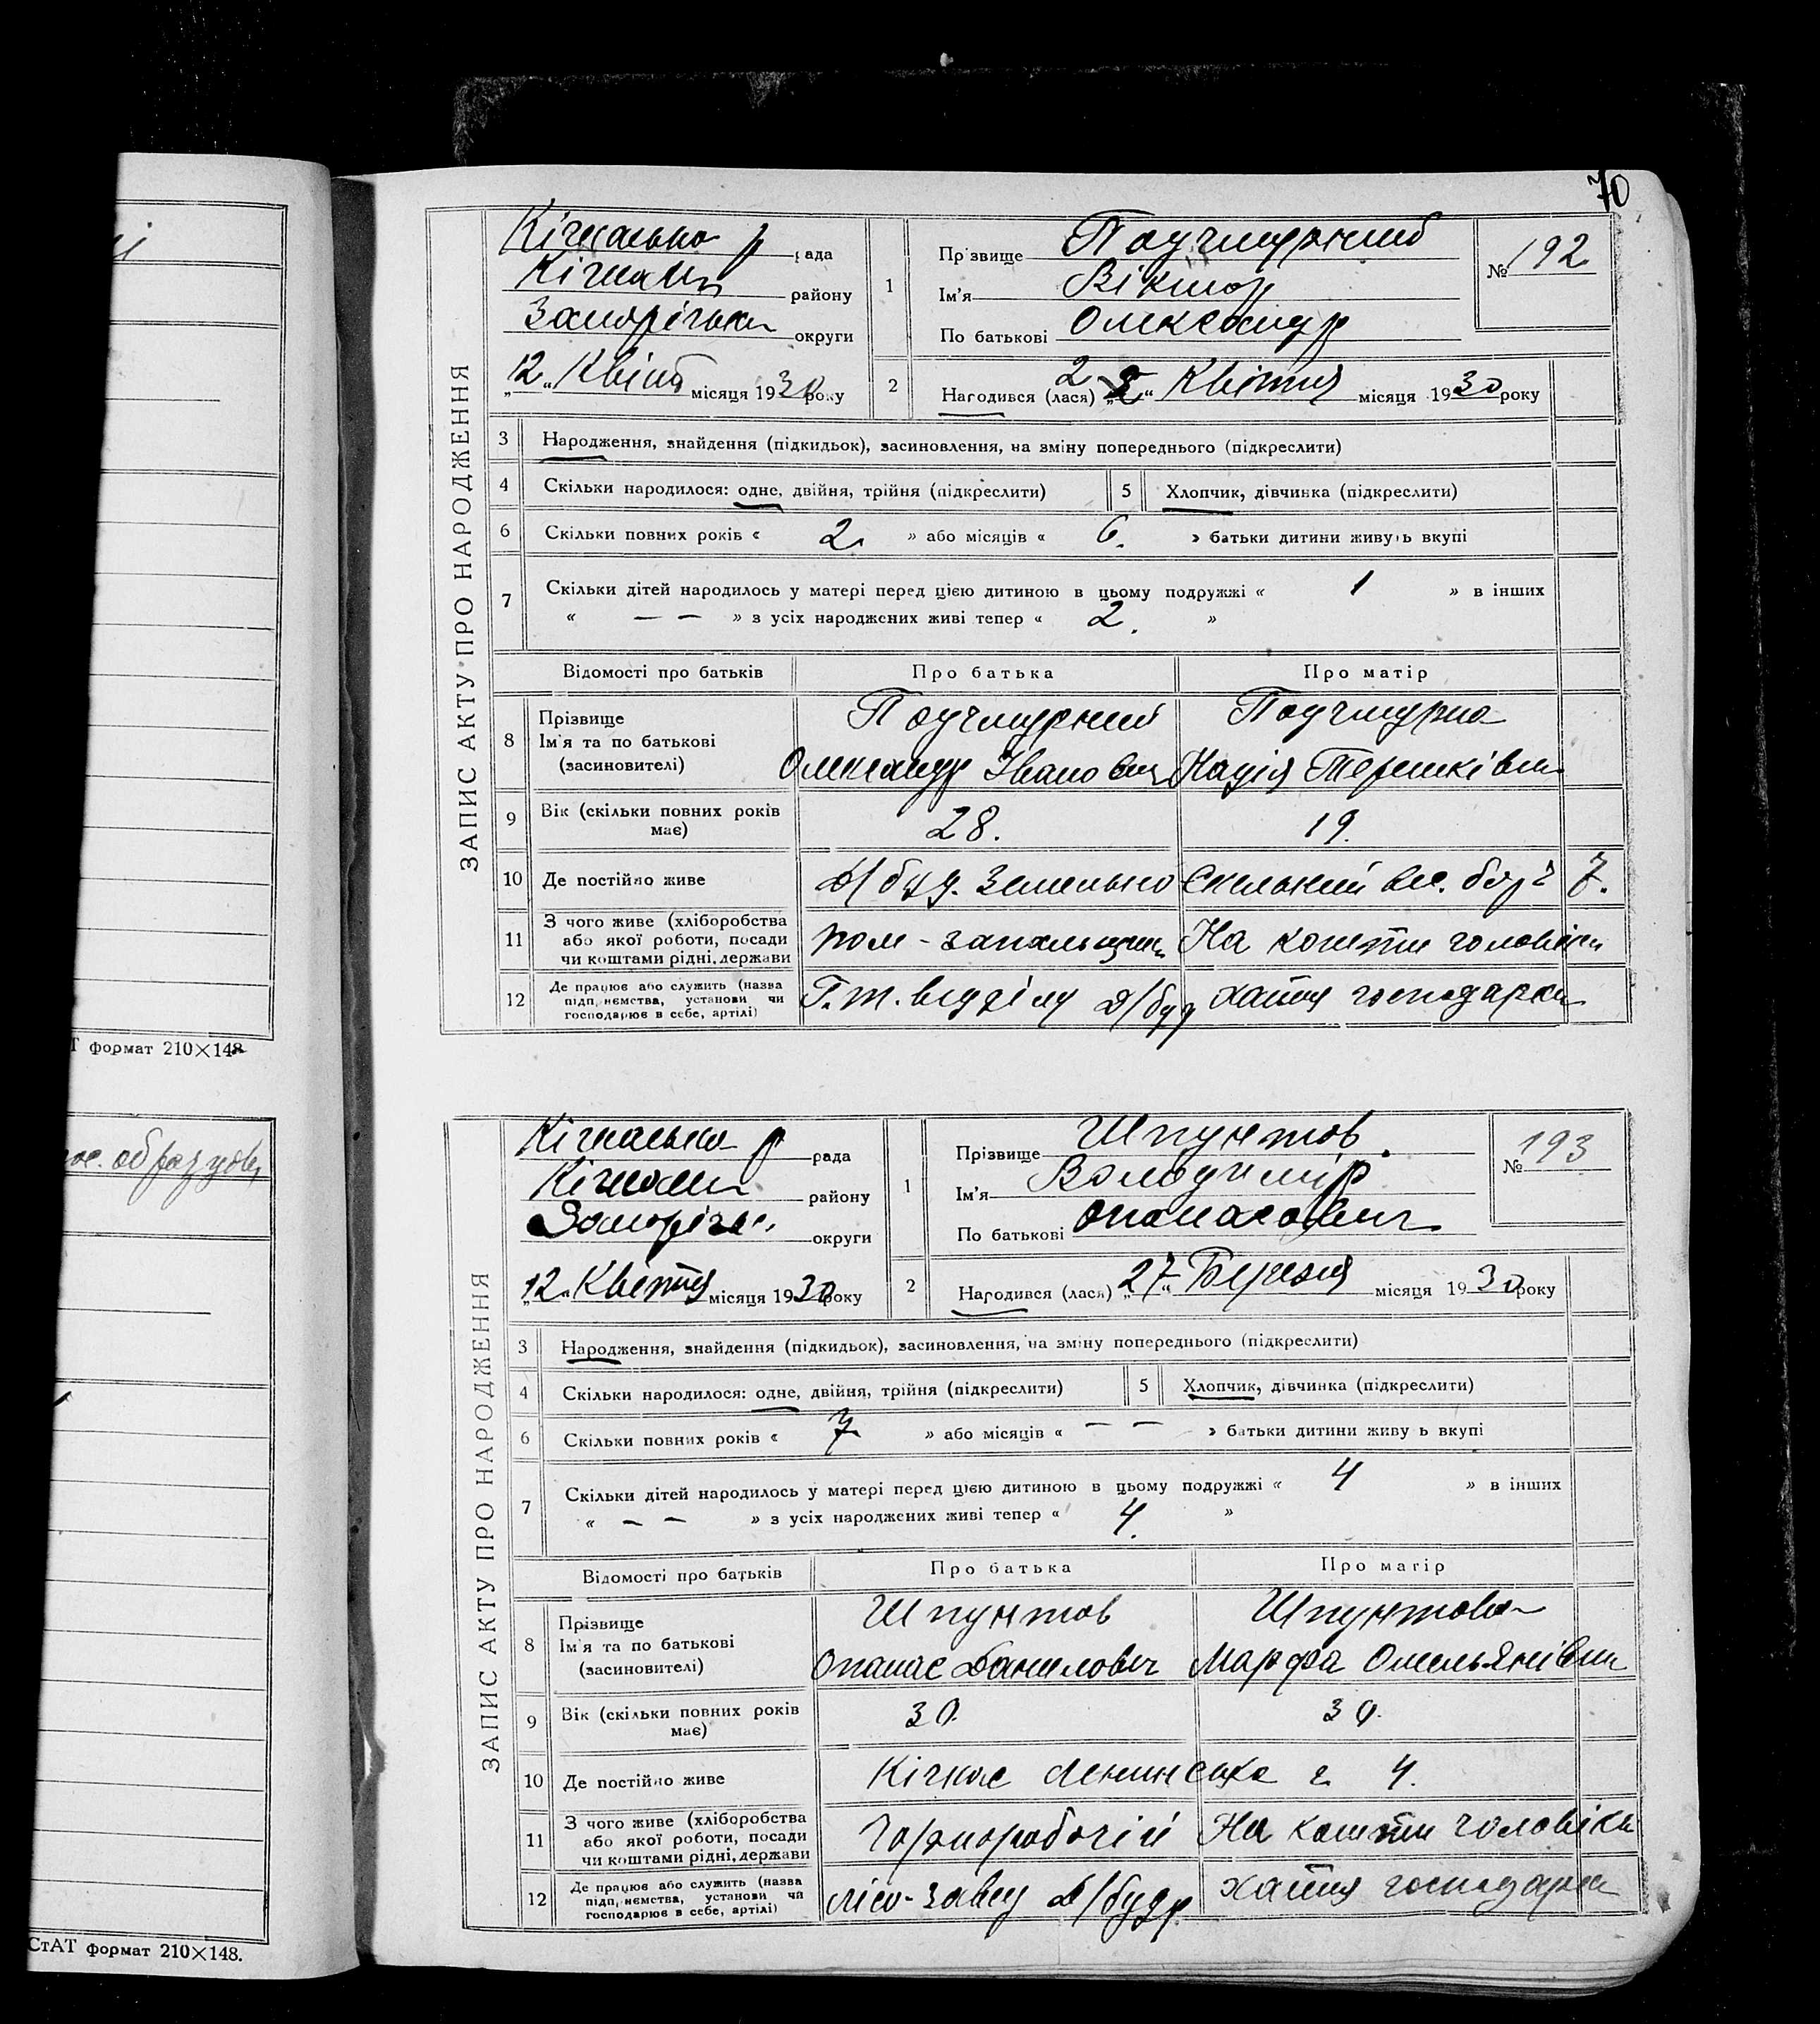 70
ЗАПИС АКТУ ПРО НАРОДЖЕННЯ
Кічкаська р рада
Кічкаськ району
Запоріська округи
„12“ Квітня місяця 1930 року
1
Прізвище
Ім'я Віктор
По батькові Олександр
№ 192
2 Народився (лася) „2“ Квітня місяця 1930 року
3 Народження, знайдення (підкидьок), засиновлення, на зміну попереднього (підкреслити)
4 Скільки народилося: одне, двійня, трійня (підкреслити) 5 Хлопчик, дівчинка (підкреслити)
6 Скільки повних років « 2 » або місяців « 6. » батьки дитини живуть вкупі
7 Скільки дітей народилось у матері перед цією дитиною в цьому подружжі « 1 » в інших
« — — » з усіх народжених живі тепер « 2. »
Відомості про батьків Про батька Про матір
8 Прізвище
Ім'я та по батькові Олександр Іванович Надія
(засиновителі)
9 Вік (скільки повних років 28. 19.
має)
10 Де постійно живе Д/буд. 7.
11 З чого живе (хліборобства На кошти чоловіка
або якої роботи, посади
чи коштами рідні, держави
12 Де працює або служить (назва відділу Д/буд хатня господарка
підприємства, установи чи
господарює в себе, артілі)
Т формат 210×148
ЗАПИС АКТУ ПРО НАРОДЖЕННЯ
Кічкаська р рада
Кічкаськ району
Запорізьк. округи
„12“ Квітня місяця 1930 року
1
Прізвище Шпунтов.
Ім'я Володимір
По батькові Опанасович
№ 193
2 Народився (лася) „27“ Березня місяця 1930 року
3 Народження, знайдення (підкидьок), засиновлення, на зміну попереднього (підкреслити)
4 Скільки народилося: одне, двійня, трійня (підкреслити) 5 Хлопчик, дівчинка (підкреслити)
6 Скільки повних років « 7 » або місяців « — — » батьки дитини живуть вкупі
7 Скільки дітей народилось у матері перед цією дитиною в цьому подружжі « 4 » в інших
« — — » з усіх народжених живі тепер « 4. »
Відомості про батьків Про батька Про матір
8 Прізвище Шпунтов Шпунтова
Ім'я та по батькові Опанас Данилович Марфа Омельянівна
(засиновителі)
9 Вік (скільки повних років 30. 30.
має)
10 Де постійно живе Кічкас Ленинська 4.
11 З чого живе (хліборобства Чорноробочій На кошти чоловіка
або якої роботи, посади
чи коштами рідні, держави
12 Де працює або служить (назва лісо-завод Д/буду хатня господарка
підприємства, установи чи
господарює в себе, артілі)
СтАТ формат 210×148.